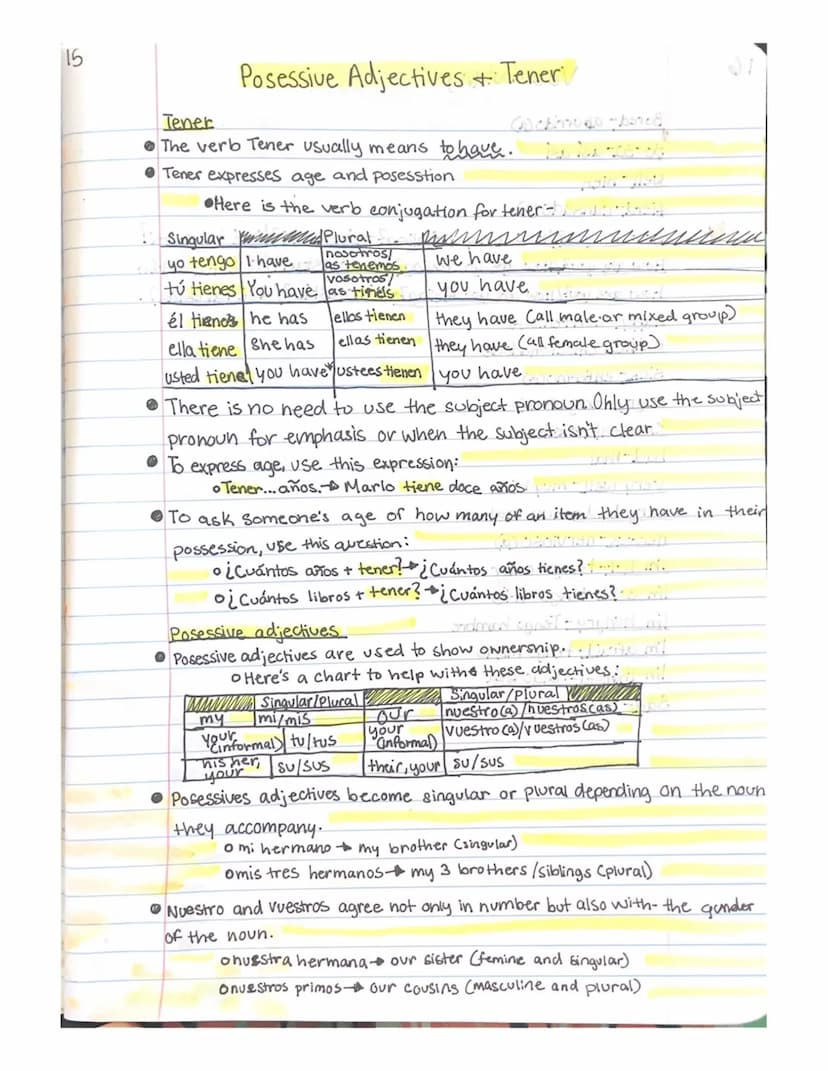 15
Posessive Adjectives + Tener
Tener
The verb Tener usually means to have.
Tener expresses age and posesstion
Here is the verb conjugation for tener-
Singular Plural
yo tengo I have nosotros/as tenemos we have
tú tienes You have vosotros/as tinéis you have
él tienes he has ellos tienen they have (all male or mixed group)
ella tiene She has ellas tienen they have (all female group)
usted tiene you have* ustees tienen you have
There is no need to use the subject pronoun. Only use the subject
pronoun for emphasis or when the subject isn't clear
To express age, use this expression:
Tener...años.→ Mario tiene doce años
To ask someone's age of how many of an item they have in their
possession, use this question:
¿Cuántos años + tener?→¿Cuántos años tienes?
¿Cuántos libros + tener?→¿Cuántos libros tienes?
Posessive adjectives
Posessive adjectives are used to show ownership.
Here's a chart to help with these adjectives:
Singular/Plural Singular/plural
my mi/mis our nuestro(a)/nuestros(as)
your (informal) tu/tus your (informal) vuestro(a)/vuestros(as)
his her, your su/sus their, your su/sus
Posessives adjectives become singular or plural depending on the noun
they accompany.
mi hermano → my brother (singular)
mis tres hermanos→ my 3 brothers/siblings (plural)
Nuestro and vuestros agree not only in number but also with- the gender
of the noun.
nuestra hermana→ our sister (femine and singular)
nuestros primos→ our cousins (masculine and plural)